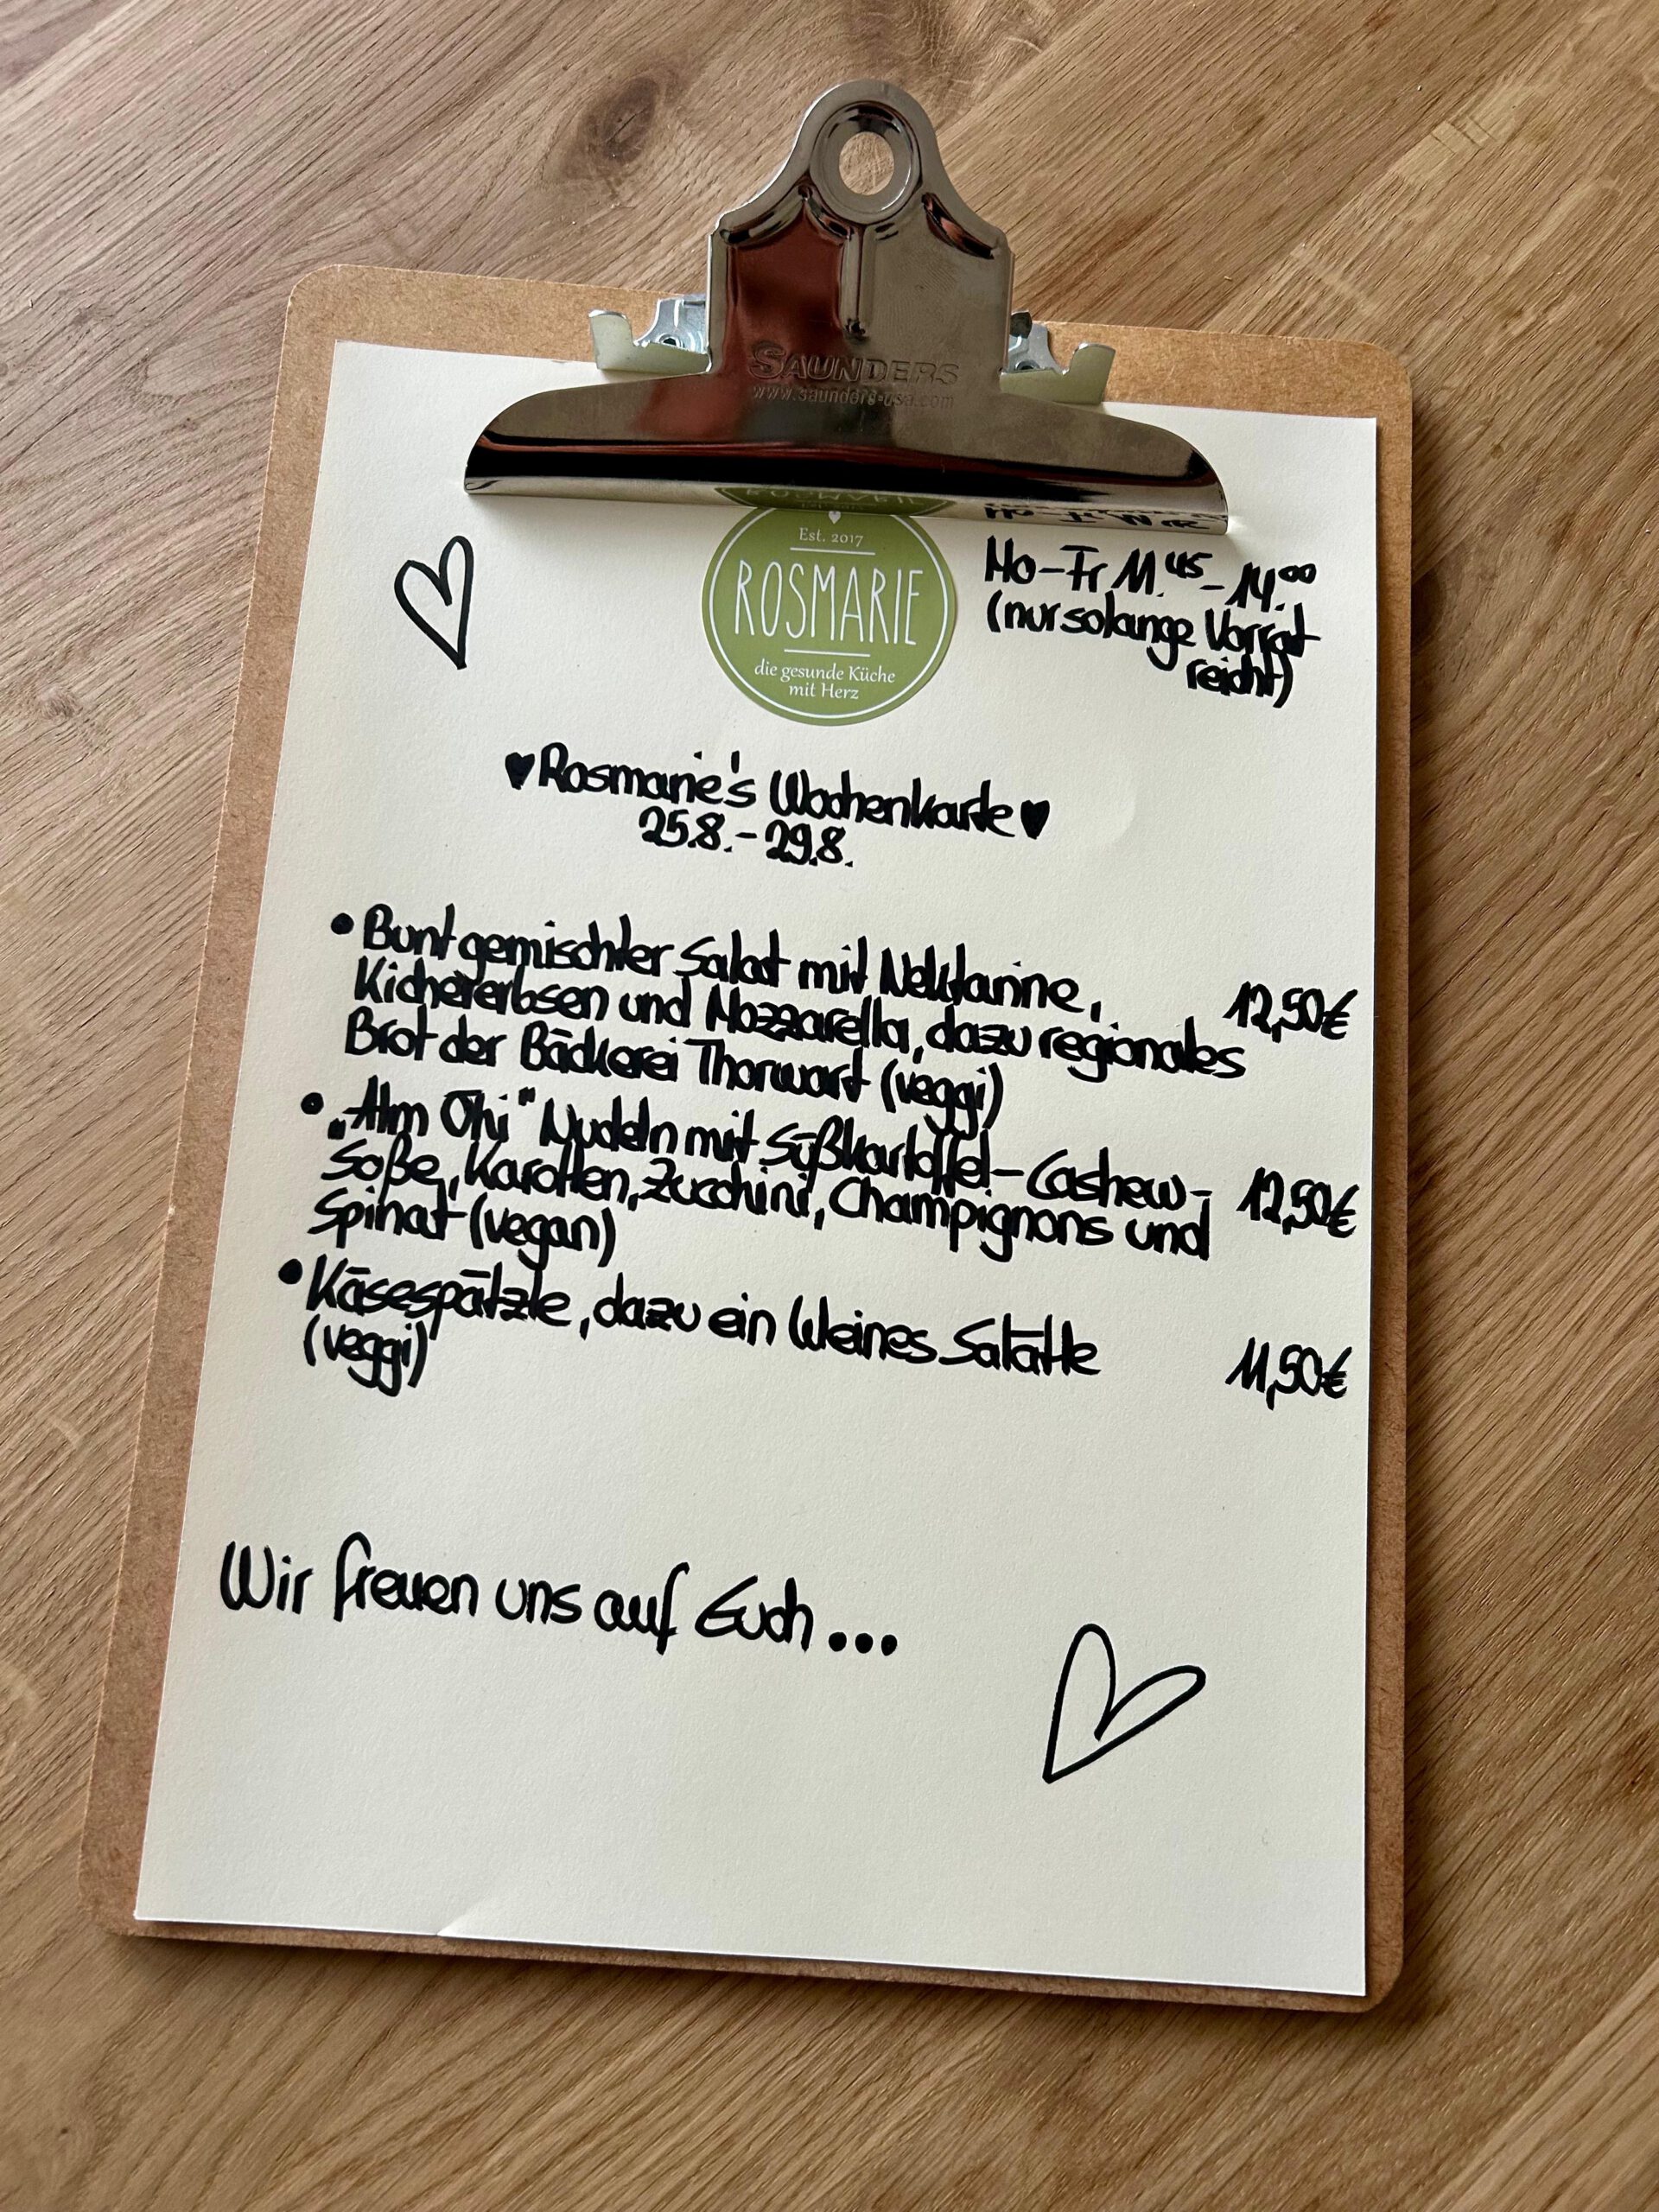 SAUNDERS
www.saunders-usa.com
Est. 2017
ROSMARIE
die gesunde Küche
mit Herz
Mo-Fr 11.45-14.00
(nur solange Vorrat
reicht)
♥Rosmarie's Wochenkarte♥
25.8.-29.8.
• Bunt gemischter Salat mit Nektarine, 12,50€
Kichererbsen und Mozzarella, dazu regionales
Brot der Bäckerei Thorwart (veggi)
• „Alm Öhi" Nudeln mit Süßkartoffel-Cashew- 12,50€
Soße, Karotten, Zucchini, Champignons und
Spinat (vegan)
• Käsespätzle, dazu ein kleines Salätle 11,50€
(veggi)
Wir freuen uns auf Euch...